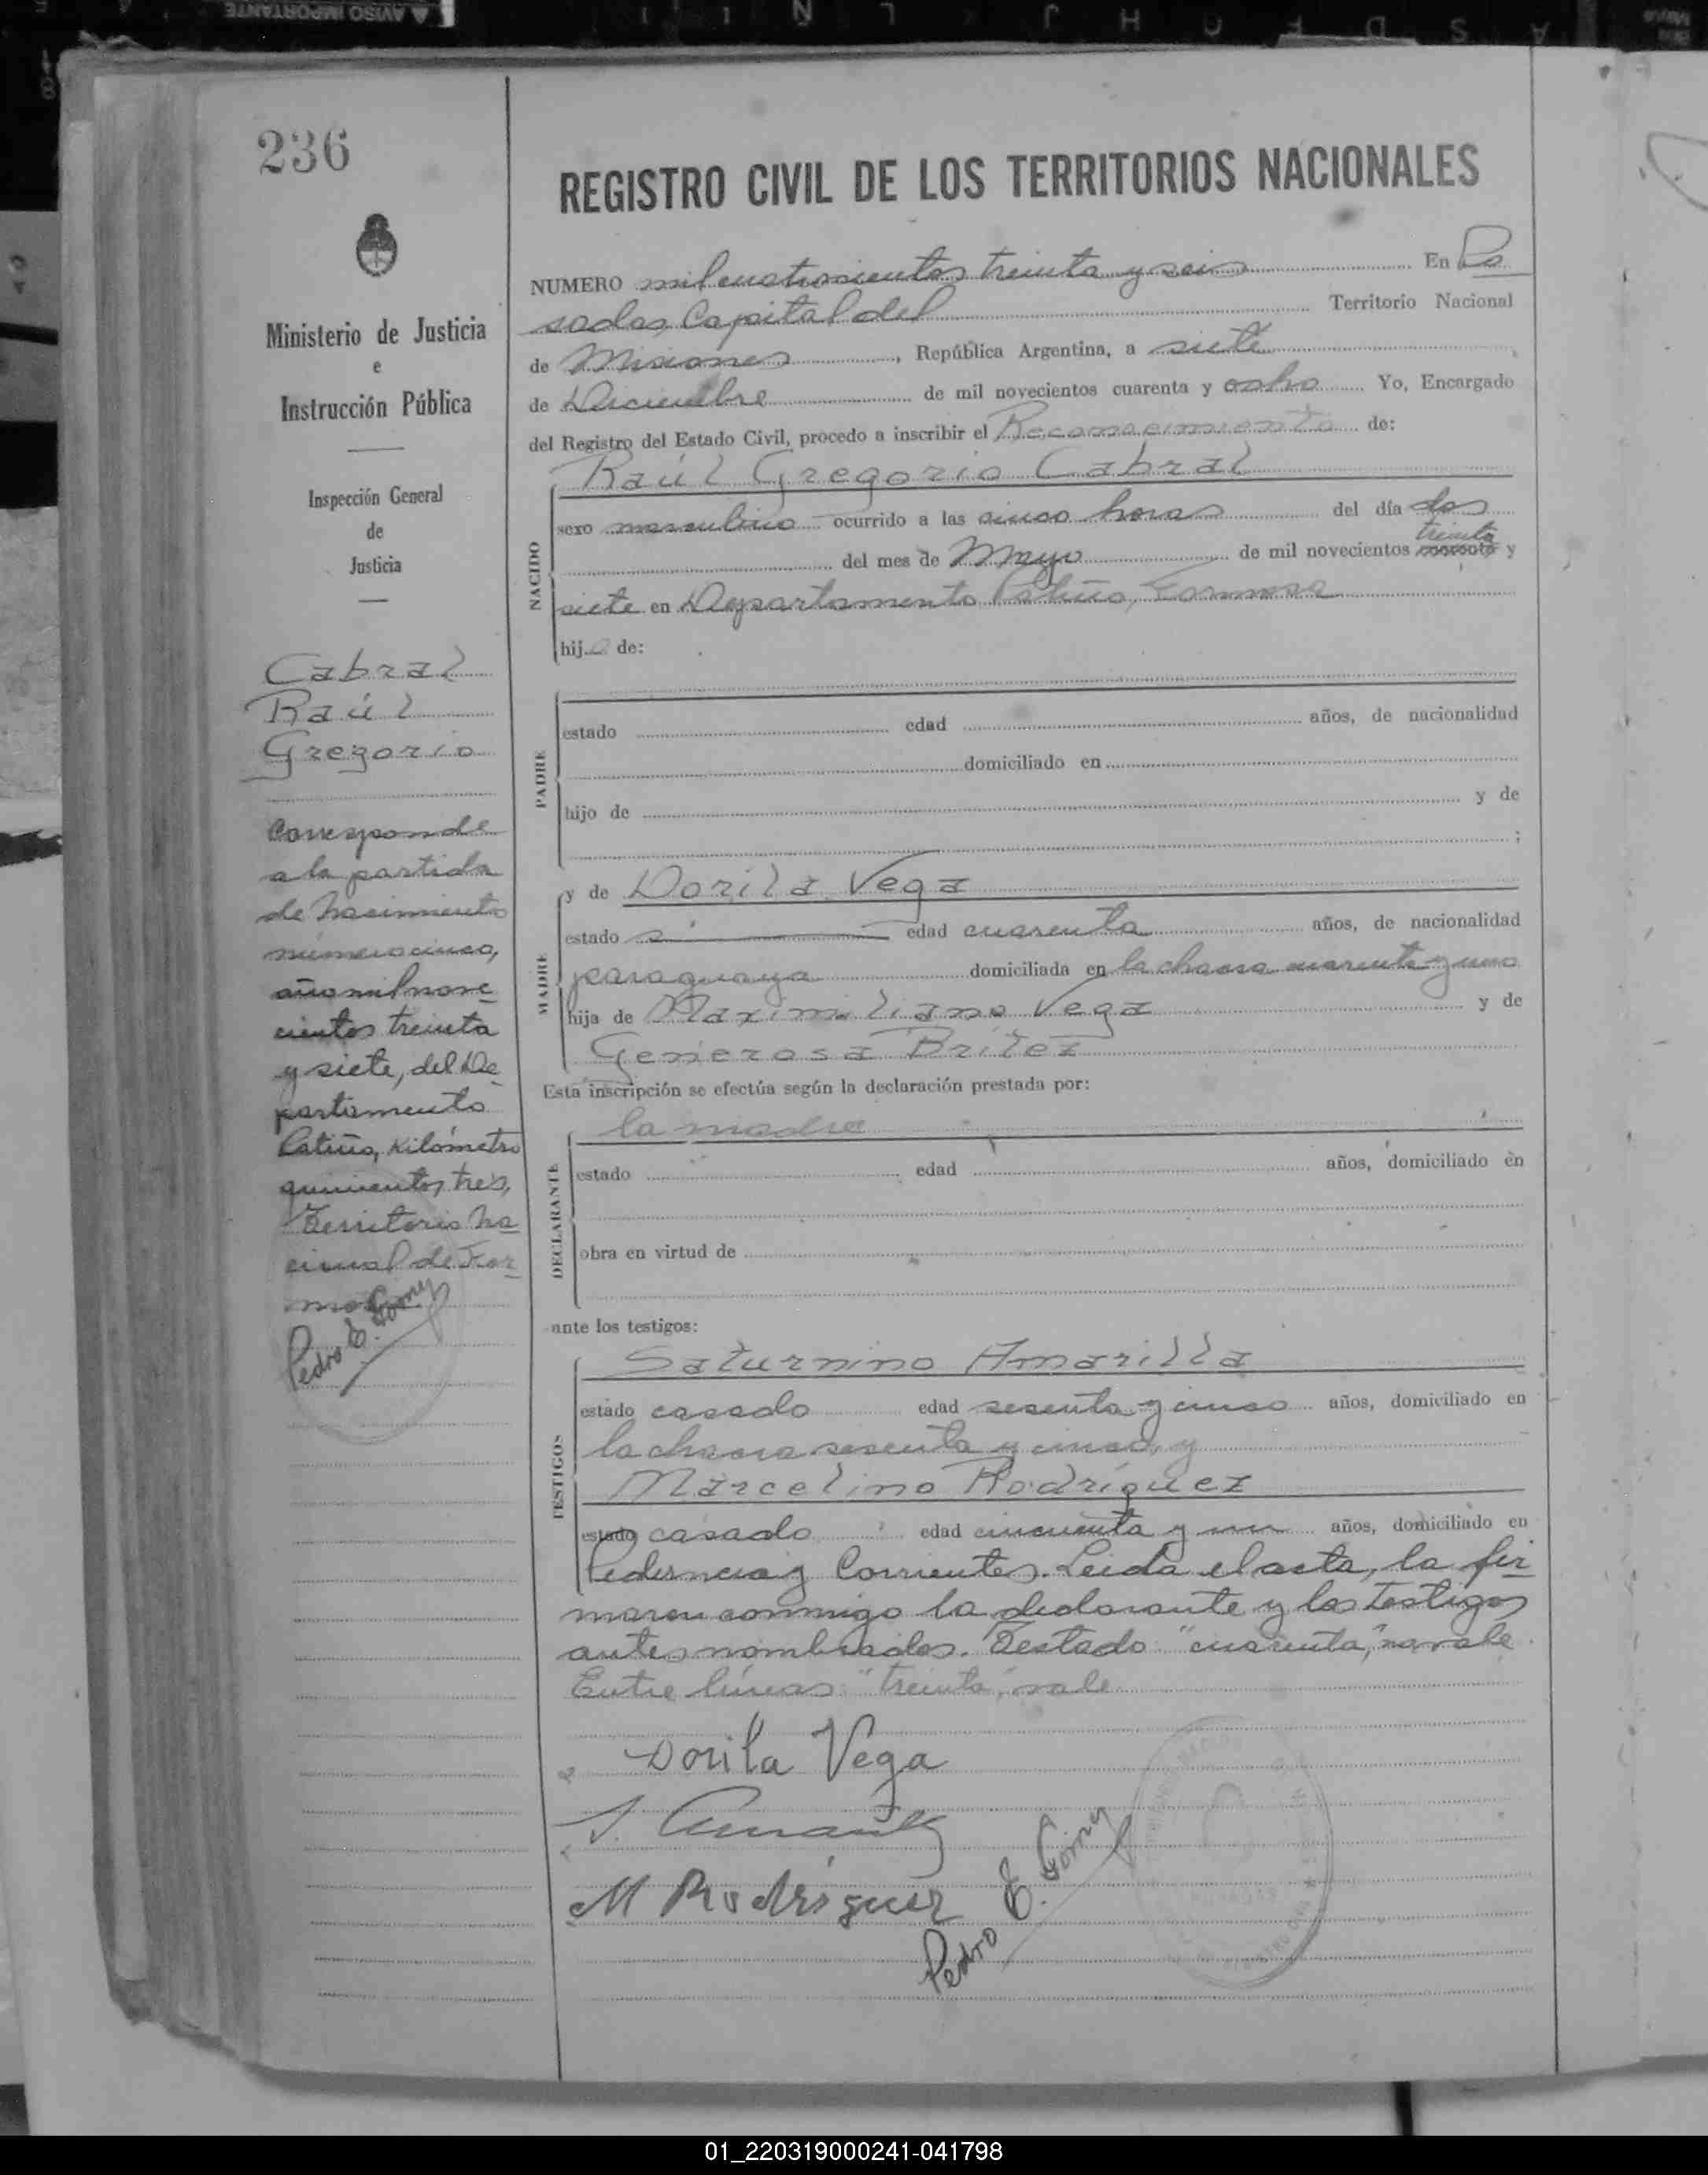 236
Ministerio de Justicia
e
Instrucción Pública
Inspección General
de
Justicia
Cabral
Raúl
Gregorio
Corresponde
a la partida
de nacimiento
número cinco,
año mil nove
cientos treinta
y siete, del De
partamento
Patiño, Kilómetro
quinientos tres,
Territorio Na
cional de For
mosa
Pedro E.
REGISTRO CIVIL DE LOS TERRITORIOS NACIONALES
NUMERO mil cuatrocientos treinta y seis En Po
sadas, Capital del Territorio Nacional
de Misiones, República Argentina, a siete
de Diciembre de mil novecientos cuarenta y ocho Yo, Encargado
del Registro del Estado Civil, procedo a inscribir el Reconocimiento de:
Raúl Gregorio Cabral
NACIDO
sexo masculino ocurrido a las cinco horas del día dos
treinta
del mes de Mayo de mil novecientos cuarenta y
siete en Departamento Patiño, Formosa
hijo de:
PADRE
estado edad años, de nacionalidad
domiciliado en
hijo de y de
;
MADRE
y de Dorila Vega
estado s edad cuarenta años, de nacionalidad
paraguaya domiciliada en la chacra cuarenta y uno
hija de Maximiliano Vega y de
Generosa Britez
Esta inscripción se efectúa según la declaración prestada por:
DECLARANTE
la madre
estado edad años, domiciliado en
obra en virtud de
ante los testigos:
TESTIGOS
Saturnino Amarilla
estado casado edad sesenta y cinco años, domiciliado en
la chacra sesenta y cinco, y
Marcelino Rodríguez
estado casado edad cincuenta y un años, domiciliado en
Pedernera y Corrientes. Leida el acta, la fir
maron conmigo la declarante y los testigos
antes nombrados. Testado "cuarenta," no vale.
Entre líneas "treinta," vale
Dorila Vega
S. Amarilla
M Rodriguez
Pedro E.
01_220319000241-041798